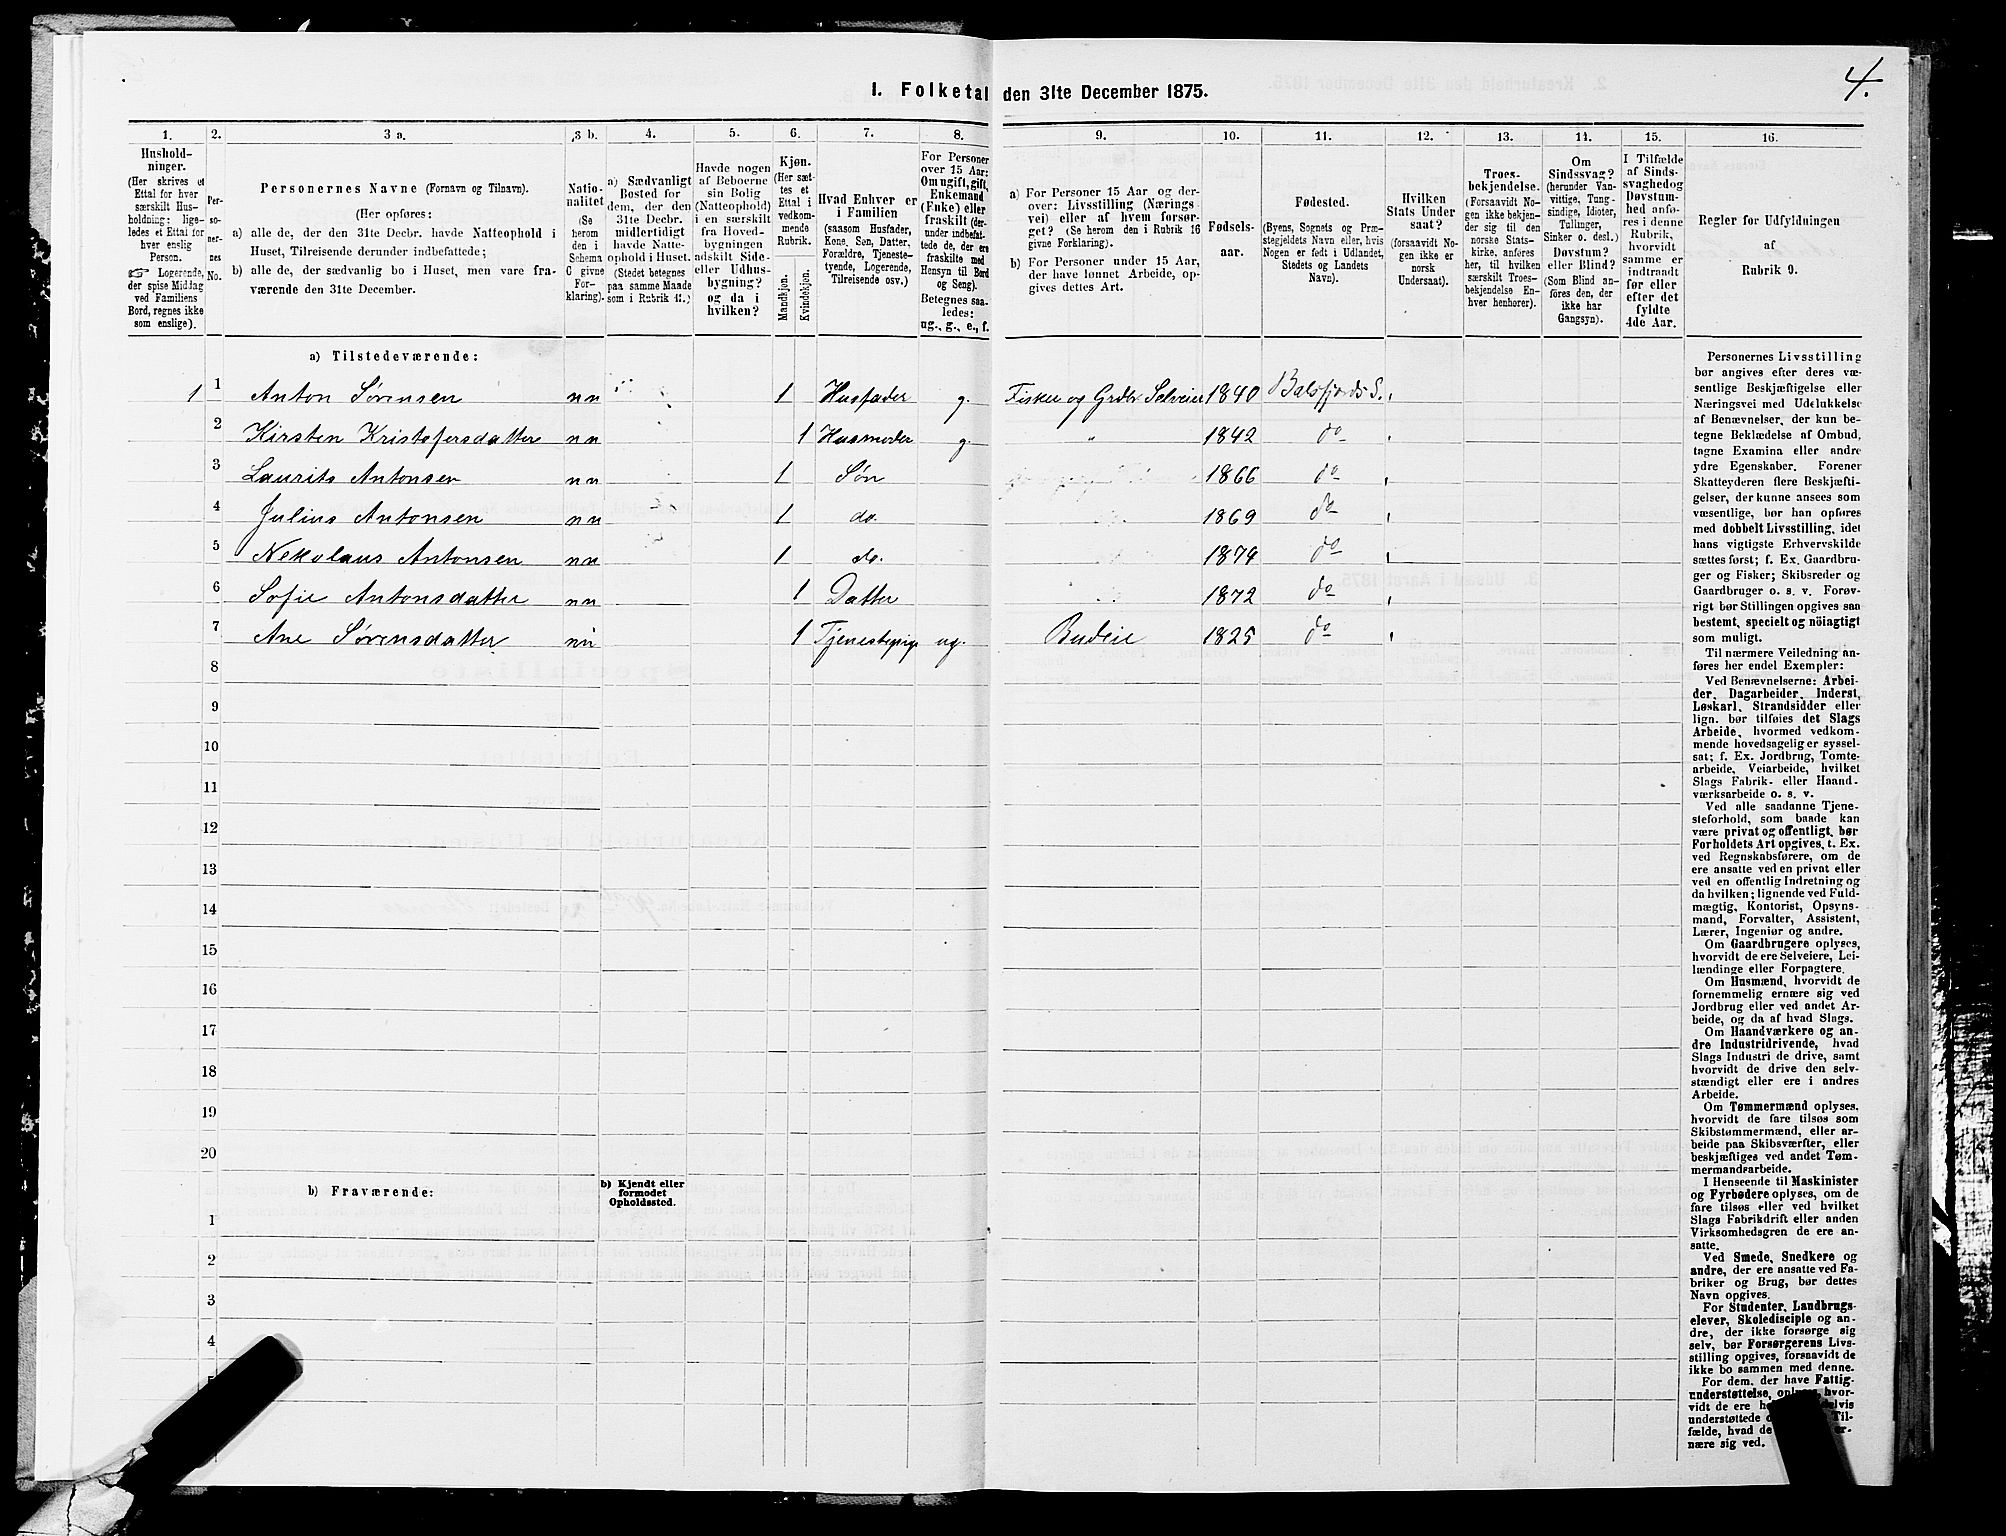 4.
I. Folketal den 31te December 1875.
1. 2. 3 a. 3 b. 4. 5. 6. 7. 8. 9. 10. 11. 12. 13. 14. 15. 16.
Hushold-
ninger.
(Her skrives et
Ettal for hver
særskilt Hus-
holdning; lige-
ledes et Ettal for
hver enslig
Person.
☞ Logerende,
der spise Middag
ved Familiens
Bord, regnes ikke
som enslige).
Per-
so-
ner-
nes
No.
Personernes Navne (Fornavn og Tilnavn).
(Her opføres:
a) alle de, der den 31te Decbr. havde Natteophold i
Huset, Tilreisende derunder indbefattede;
b) alle de, der sædvanlig bo i Huset, men vare fra-
værende den 31te December.
Natio-
nalitet
(Se
herom
den i
Schema
C givne
For-
klaring).
a) Sædvanligt
Bosted for
dem, der den
31te Decbr.
midlertidigt
havde Natte-
ophold i Huset.
(Stedet betegnes
paa samme Maade
som i Rubrik 11.)
Havde nogen
af Beboerne
sin Bolig
(Natteophold)
i en særskilt
fra Hoved-
bygningen
adskilt Side-
eller Udhus-
bygning?
og da i
hvilken?
Kjøn.
(Her sæt-
tes et
Ettal i
vedkom-
mende
Rubrik.
Mandkjøn.
Kvindekjøn.
Hvad Enhver er
i Familien
(saasom Husfader,
Kone, Søn, Datter,
Forældre, Tjeneste-
tyende, Logerende,
Tilreisende osv.)
For Personer
over 15 Aar:
Om ugift, gift,
Enkemand
(Enke) eller
fraskilt (der-
under indbefat-
tede de, der ere
fraskilte med
Hensyn til Bord
og Seng).
Betegnes saa-
ledes:
ug., g., e., f.
a) For Personer 15 Aar og der-
over: Livsstilling (Nærings-
vei) eller af hvem forsør-
get? (Se herom den i Rubrik 16
givne Forklaring).
b) For Personer under 15 Aar,
der have lønnet Arbeide, op-
gives dettes Art.
Fødsels-
aar.
Fødested.
(Byens, Sognets og Præ-
stegjeldets Navn eller, hvis
Nogen er født i Udlandet,
Stedets og Landets
Navn).
Hvilken
Stats Under
saat?
(forsaavidt No-
gen ikke er
norsk
Undersaat).
Troes-
bekjendelse.
(Forsaavidt No-
gen ikke bekjen-
der sig til den
norske Stats-
kirke, anføres
her, til hvilken
særskilt Troes-
bekjendelse En-
hver henhører).
Om
Sindssvag?
(herunder Van-
vittige, Tung-
sindige, Idioter,
Tullinger,
Sinker o. desl.)
Døvstum?
eller Blind?
(Som Blind an-
føres den, der
ikke har
Gangsyn).
I Tilfælde
af Sinds-
svaghed og
Døvstum-
hed anfø-
res i denne
Rubrik,
hvorvidt
samme er
indtraadt
før eller
efter det
fyldte
4de Aar.
Regler for Udfyldningen
af
Rubrik 9.
a) Tilstedeværende:
1 1 Anton Sørensen nn 1 Husfader g. Fisker og Grdbr Selveier 1840 Balsfjords S.
2 Kirsten Kristofersdatter nn 1 Husmoder g. " 1842 do
3 Laurits Antonsen nn 1 Søn 1866 do
4 Julius Antonsen nn 1 do. 1869 do
5 Nekolaus Antonsen nn 1 do. 1874 do
6 Sofie Antonsdatter nn 1 Datter 1872 do
7 Ane Sørensdatter nn 1 Tjenestepige ug. Budeie 1825 do
8
9
10
11
12
13
14
15
16
17
18
19
20
b) Fraværende:
b) Kjendt eller
formodet
Opholdssted.
1
2
3
4
5
Personernes Livsstilling
bør angives efter deres væ-
sentlige Beskjæftigelse eller
Næringsvei med Udelukkelse
af Benævnelser, der kun be-
tegne Beklædelse af Ombud,
tagne Examina eller andre
ydre Egenskaber. Forener
Skatteyderen flere Beskjæfti-
gelser, der kunne ansees som
væsentlige, bør han opføres
med dobbelt Livsstilling, idet
hans vigtigste Erhvervskilde
sættes først; f. Ex. Gaardbru-
ger og Fisker; Skibsreder og
Gaardbruger o. s. v. Forøv-
rigt bør Stillingen opgives saa
bestemt, specielt og nöiagtigt
som muligt.
Til nærmere Veiledning an-
føres her endel Exempler:
Ved Benævnelserne: Arbei-
der, Dagarbeider, Inderst,
Løskarl, Strandsidder eller
lign. bør tilføies det Slags
Arbeide, hvormed vedkom-
mende hovedsagelig er syssel-
sat; f. Ex. Jordbrug, Tomte-
arbeide, Veiarbeide, hvilket
Slags Fabrik- eller Haand-
værksarbeide o. s. v.
Ved alle saadanne Tjene-
steforhold, som baade kan
være privat og offentligt, bør
Forholdets Art opgives, t. Ex.
ved Regnskabsførere, om de
ere ansatte ved en privat eller
ved en offentlig Indretning og
da hvilken; lignende ved Fuld-
mægtig, Kontorist, Opsyns-
mand, Forvalter, Assistent,
Lærer, Ingeniør og andre.
Om Gaardbrugere oplyses,
hvorvidt de ere Selveiere, Lei-
lændinge eller Forpagtere.
Om Husmænd, hvorvidt de
fornemmelig ernære sig ved
Jordbrug eller ved andet Ar-
beide, og da af hvad Slags.
Om Haandværkere og an-
dre Industridrivende, hvad
Slags Industri de drive, samt
hvorvidt de drive den selv-
stændigt eller ere i andres
Arbeide.
Om Tømmermænd oplyses,
hvorvidt de fare tilsøs som
Skibstømmermænd, eller ar-
beide paa Skibsværfter, eller
beskjæftiges ved andet Tøm-
mermandsarbeide.
I Henseende til Maskinister
og Fyrbødere oplyses, om de
fare tilsøs eller ved hvilket
Slags Fabrikdrift eller anden
Virksomhedsgren de ere an-
satte.
Ved Smede, Snedkere og
andre, der ere ansatte ved Fa-
briker og Brug, bør dettes
Navn opgives.
For Studenter, Landbrugs-
elever, Skoledisciple og an-
dre, der ikke forsørge sig
selv, bør Forsørgerens Livs-
stilling opgives, forsaavidt de
ikke bo sammen med denne.
For dem, der have Fattig-
understøttelse, hvor-
vidt de ere
understøttede Til-
fælde, hvad de
nære sig ved.